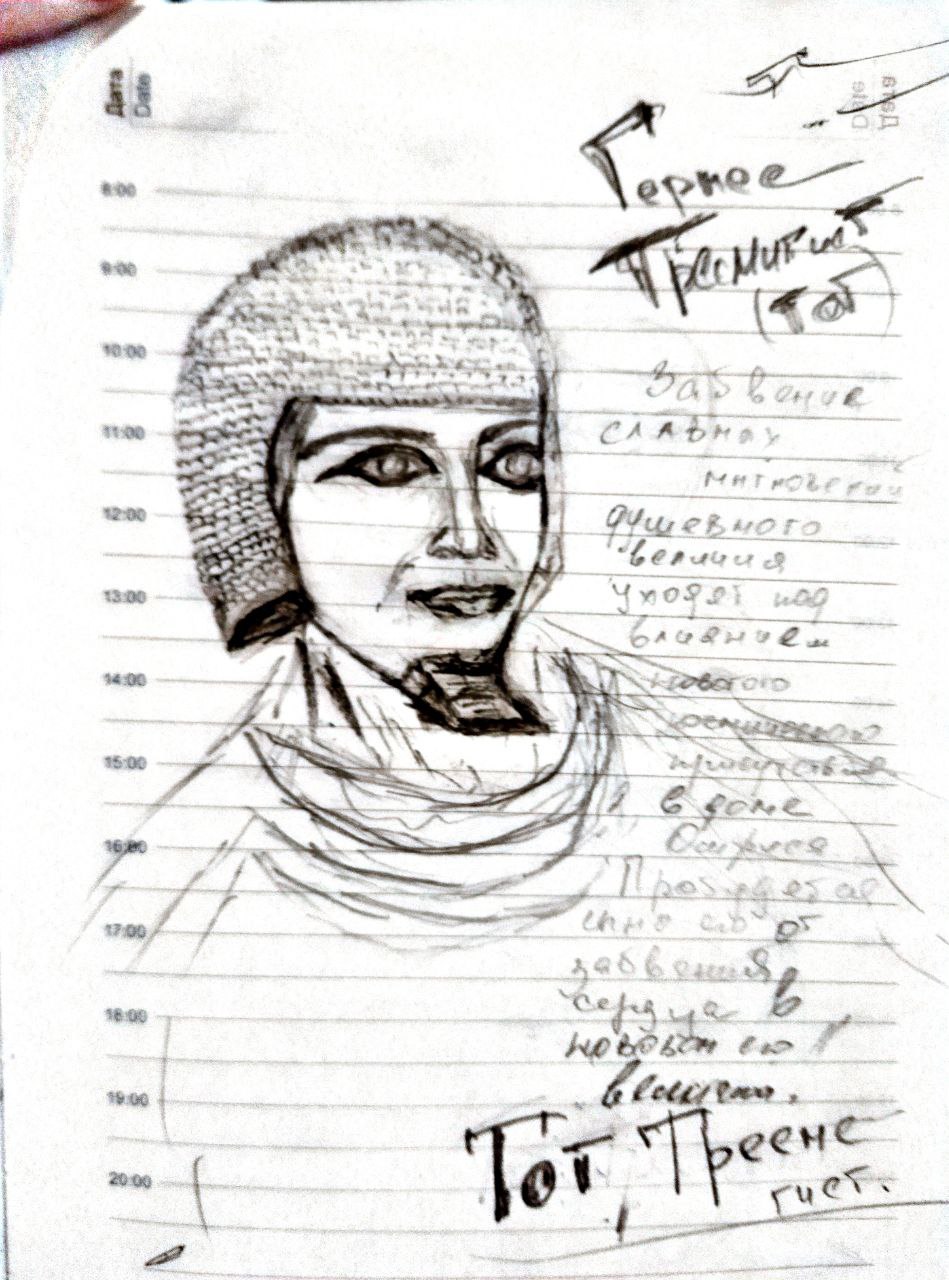 Дата
Date
Date
Дата
8:00
9:00
10:00
11:00
12:00
13:00
14:00
15:00
16:00
17:00
18:00
19:00
20:00
Гермес
Трисмигист
(Тот)
Забвение
славных
мгновений
душевного
величия
уходят под
влиянием
нового
космического
присутствия
в доме
Осириса
Пробудется
от
забвения
сердца в
его
величии.
Тот, Трисме
гист.